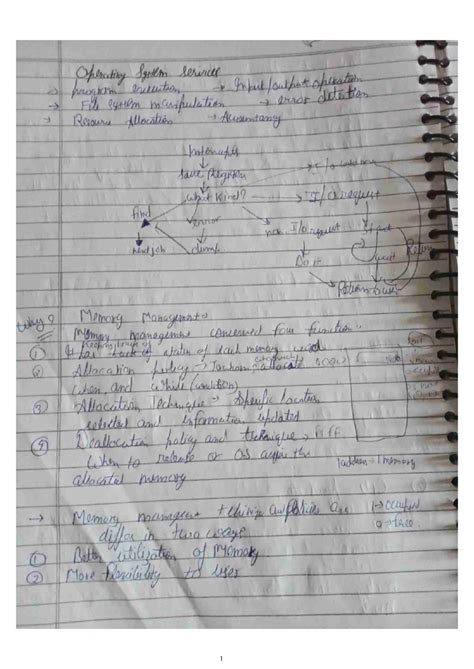 Operating System services
→ program execution → Input/output operation
→ File System manipulation → error detetion
→ Resource Allocation → Accountancy
Interrupts
Save Register
What Kind? → I/O request
find error non I/O request Start
next job dump Do it wait Return
Return-user
Why? Memory Management
Memory management concerned four function.
① It has track of status of each memory word
② Allocation policy →
When and While (condition)
③ Allocation Technique → Specific location
selected and Information updated
④ Deallocation policy and technique →
When to release or OS acquire the
allocated memory
1 address → 1 memory
→ Memory management techniques policies are 1 → occupied
differ in two ways 0 → free
① Better utilization of Memory
② More flexibility to User
1